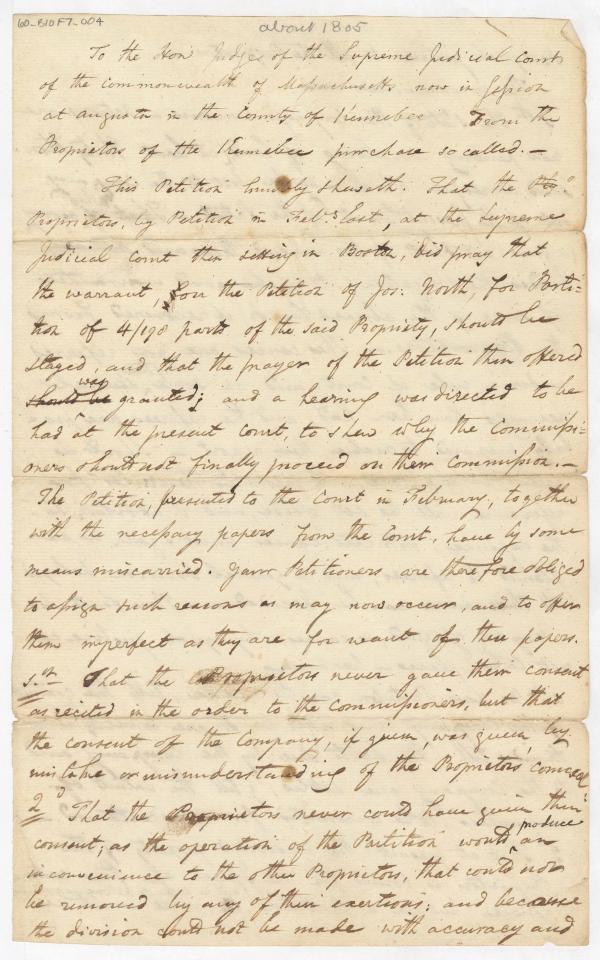 60-B10F7-004
about 1805
To the Hon: Judges of the Supreme Judicial Court
of the commonwealth of Massachusetts now in Session
at augusta in the County of Kennebec From the
Proprietors of the Kennebec purchase so called.—
This Petition humbly sheweth. That the
Proprietors, by Petition in Feb.y last, at the Supreme
Judicial court then setting in Boston, did pray that
the warrant, on the Petition of Jos: North, for Parti=
tion of 4/198 parts of the said Propriety, should be
stayed, and that the prayer of the Petition then offered
should be was granted; and a hearing was directed to be
had at the present court, to shew why the Commissi=
oners should not finally proceed on their commission.—
The Petition, presented to the Court in February, together
with the necessary papers from the Court, have by some
means miscarried. your Petitioners are therefore obliged
to assign such reasons as may now occur, and to offer
them imperfect as they are for want of these papers.
1.st That the Proprietors never gave their consent
as recited in the order to the commissioners, but that
the consent of the Company, if given, was given by
mistake or misunderstanding of the Proprietors' council
2.d That the Proprietors never could have given their
consent; as the operation of the Partition would produce an
inconvenience to the other Proprietors, that could not
be removed by any of their exertions; and because
the division could not be made with accuracy and